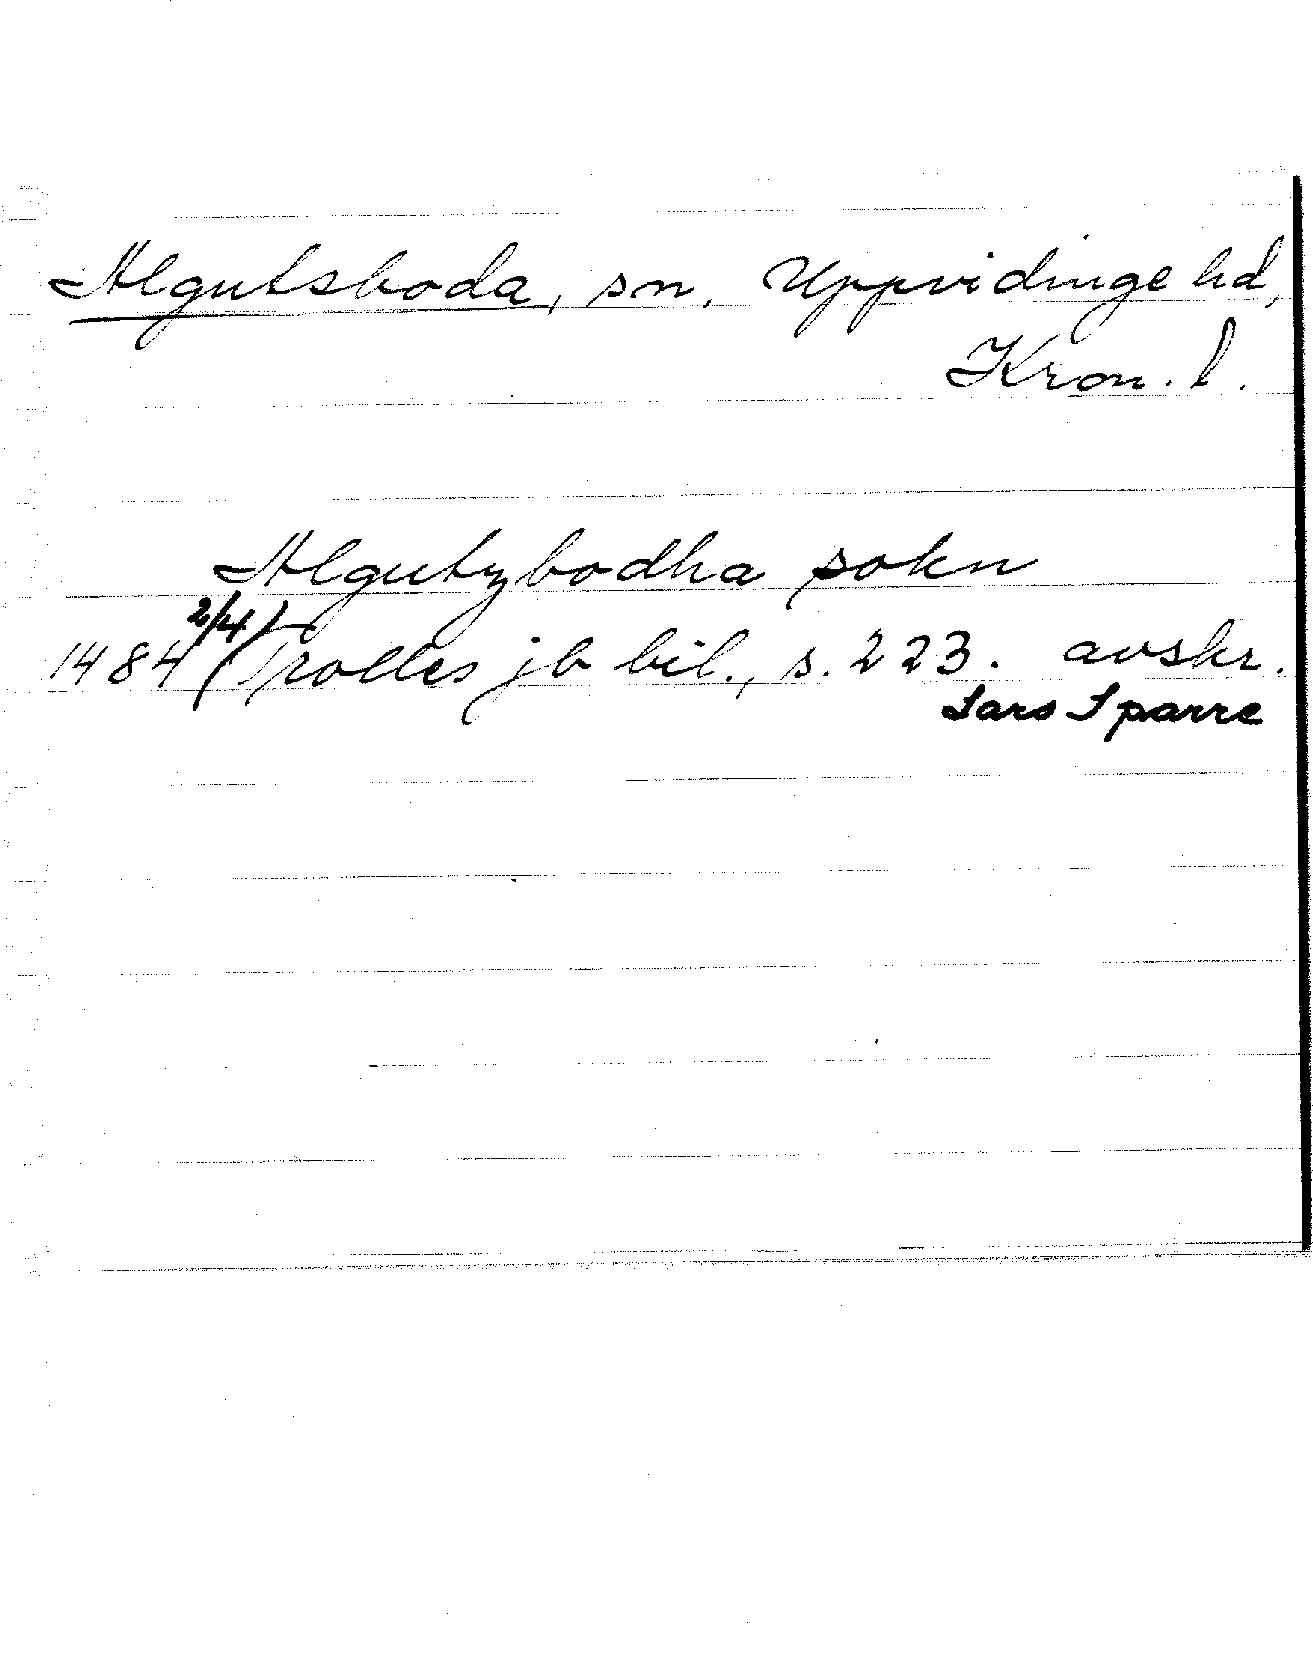 Algutsboda, sn, Uppvidinge hd,
Kron. l.
Algutzbodha sokn
1484 2/4 (Trolles jb bil., s. 223. avskr.
Lars Sparre